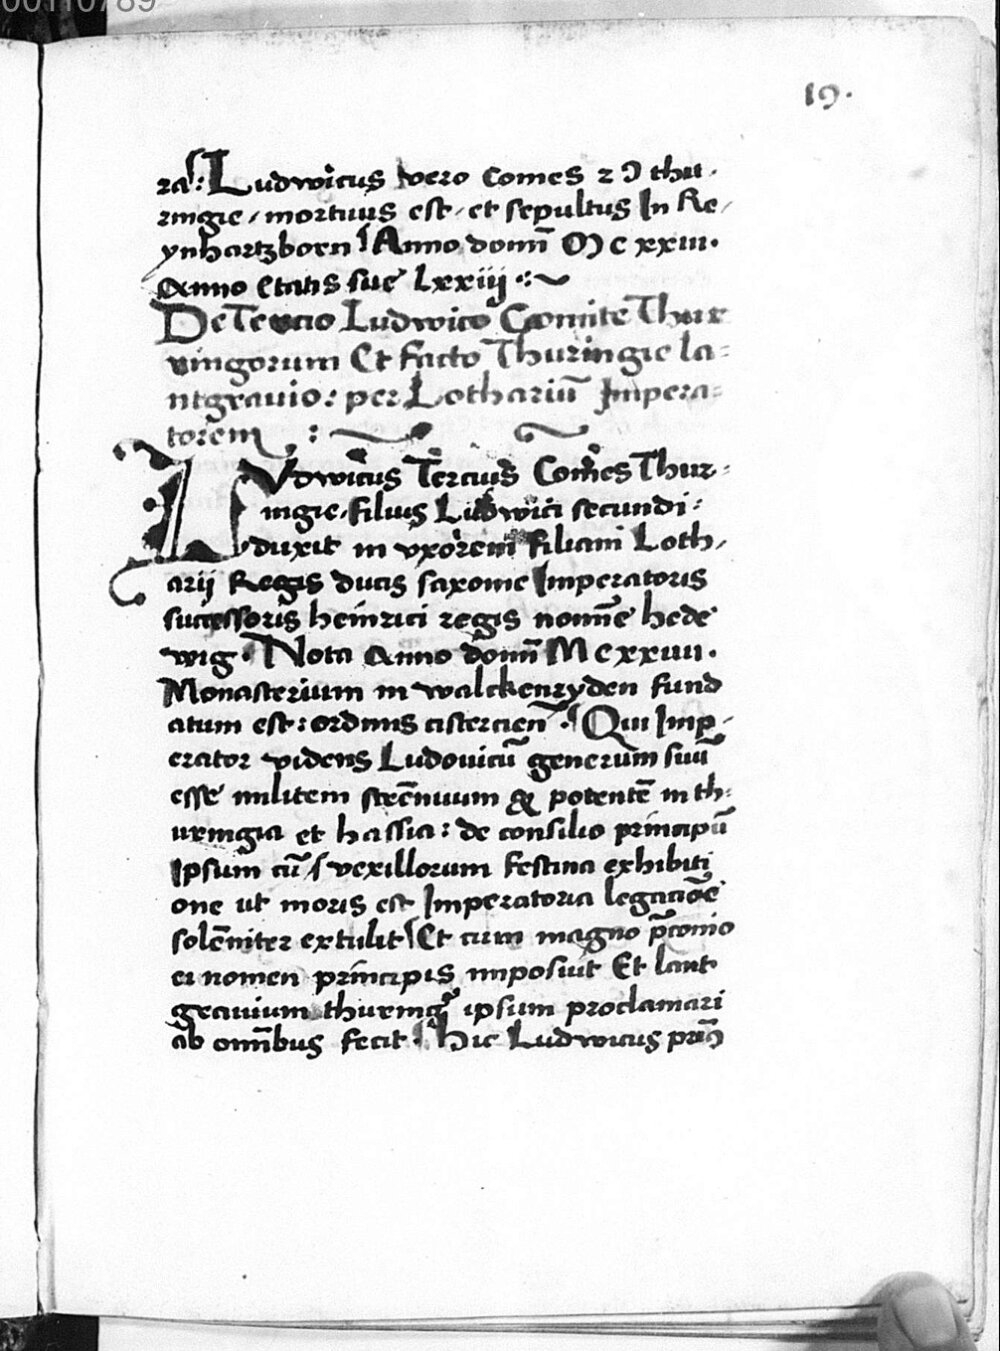 00110789
19.
ra: Ludwicus vero Comes 2 thu-
ringie, mortuus est, et sepultus In Re-
ynhartzborn Anno domī M C xxiii.
Anno Etatis sue Lxxiij
De Tercio Ludwico Comite Thur
ringorum Et facto Thuringie la=
ntgrauio: per Lothariū Impera=
torem
LVdwicus Tercius Comes Thur-
ingie, filius Ludwici secundi:
duxit in vxorem filiam Loth,
arij Regis ducis saxonie Imperatoris
successoris heinrici regis nomīe hede
wig. Nota Anno domī M C xxiiii.
Monasterium in walckenryden fund
atum est: ordinis cistercien̄. Qui Imp-
erator videns Ludouicū generum suū
esse militem strēnuum & potentē in th:
uringia et hassia: de consilio principū
Ipsum cū vexillorum festina exhibiti
one ut moris est Imperatoria legaciōe
solēniter extulit Et cum magno p̄conio
ei nomen principis imposuit Et lant
grauium thuring ipsum proclamari
ab omībus fecit. Hic Ludwicus